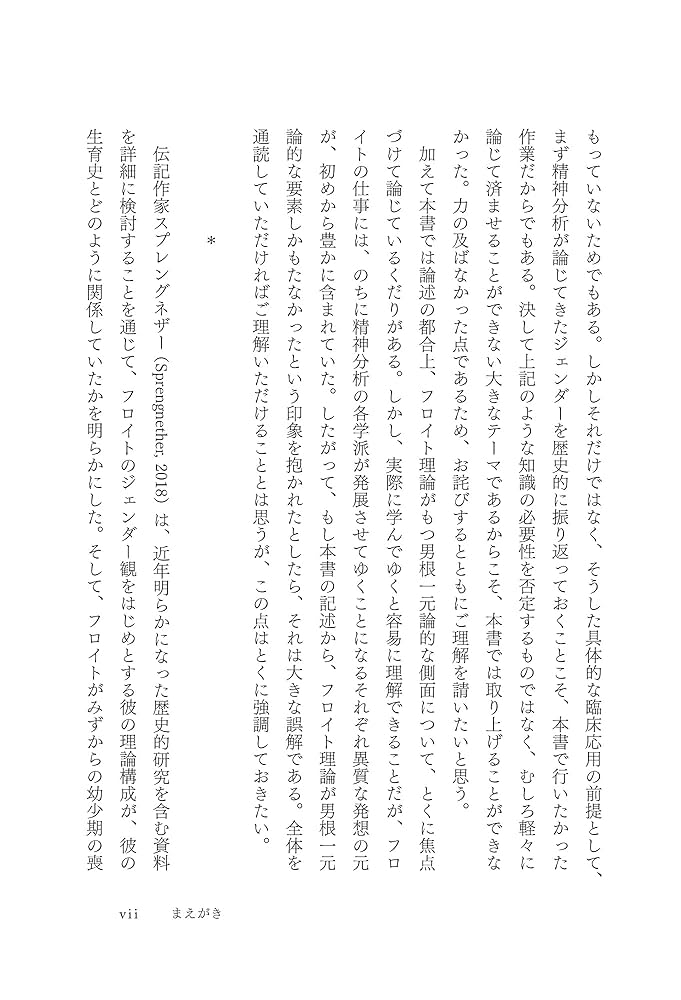 もっていないためでもある。しかしそれだけではなく、そうした具体的な臨床応用の前提として、
まず精神分析が論じてきたジェンダーを歴史的に振り返っておくことこそ、本書で行いたかった
作業だからでもある。決して上記のような知識の必要性を否定するものではなく、むしろ軽々に
論じて済ませることができない大きなテーマであるからこそ、本書では取り上げることができな
かった。力の及ばなかった点であるため、お詫びするとともにご理解を請いたいと思う。
加えて本書では論述の都合上、フロイト理論がもつ男根一元論的な側面について、とくに焦点
づけて論じているくだりがある。しかし、実際に学んでゆくと容易に理解できることだが、フロ
イトの仕事には、のちに精神分析の各学派が発展させてゆくことになるそれぞれ異質な発想の元
が、初めから豊かに含まれていた。したがって、もし本書の記述から、フロイト理論が男根一元
論的な要素しかもたなかったという印象を抱かれたとしたら、それは大きな誤解である。全体を
通読していただければご理解いただけることとは思うが、この点はとくに強調しておきたい。
＊
伝記作家スプレングネザー（Sprengnether, 2018）は、近年明らかになった歴史的研究を含む資料
を詳細に検討することを通じて、フロイトのジェンダー観をはじめとする彼の理論構成が、彼の
生育史とどのように関係していたかを明らかにした。そして、フロイトがみずからの幼少期の喪
vii まえがき